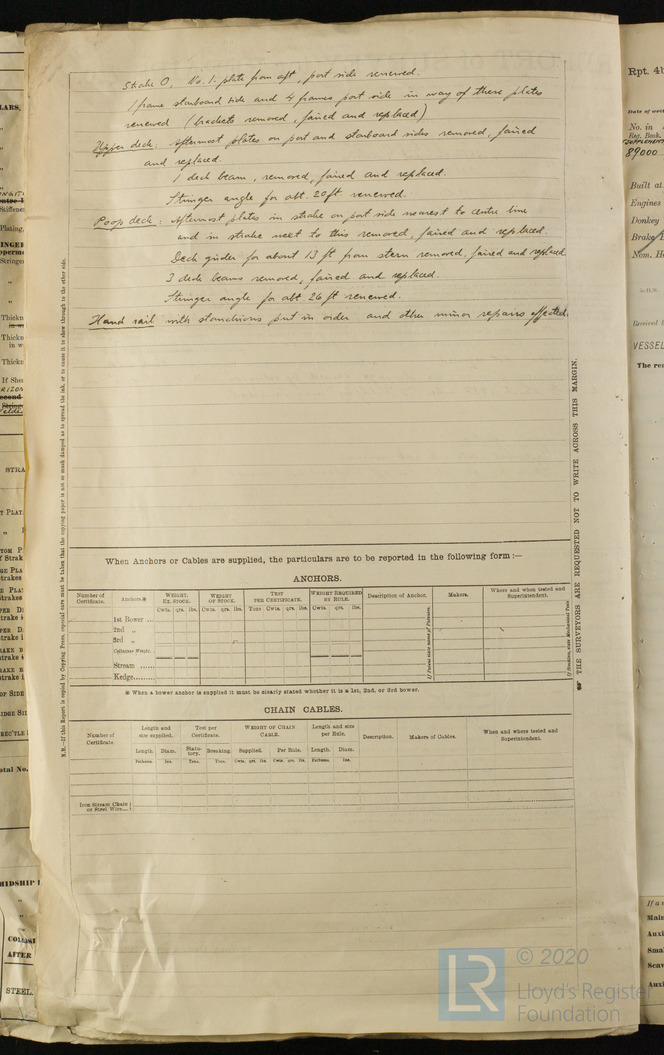 Strake O, No. 1. plate from aft, port side renewed.
1 frame starboard side and 4 frames port side in way of these plates
renewed (brackets removed, faired and replaced)
Upper deck: Aftermost plates on port and starboard sides removed, faired
and replaced.
1 deck beam, removed, faired and replaced.
Stringer angle for abt. 20ft renewed.
Poop deck: Aftermost plates in strake on port side nearest to centre line
and in strake next to this removed, faired and replaced.
Deck girder for about 13 ft from stern removed, faired and replaced
3 deck beams removed, faired and replaced.
Stringer angle for abt. 26 ft renewed.
Hand rail with stanchions put in order and other minor repairs effected.
N.B.—If this Report is copied by Copying Press, especial care must be taken that the copying paper is not so much damped as to spread the ink, or to cause it to show through to the other side.
THE SURVEYORS ARE REQUESTED NOT TO WRITE ACROSS THIS MARGIN.
When Anchors or Cables are supplied, the particulars are to be reported in the following form :—
ANCHORS.
Number of Certificate. Anchors.※ WEIGHT. EX STOCK. WEIGHT OF STOCK. TEST PER CERTIFICATE. WEIGHT REQUIRED BY RULE. Description of Anchor. Makers. Where and when tested and Superintendent.
Cwts. qrs. lbs. Cwts. qrs. lbs. Tons Cwts. qrs. lbs. Cwts. qrs. lbs.
1st Bower ...
2nd „
3rd „
Collective Weight.
Stream ......
Kedge.........
If Patent state name of Patentee.
※ When a bower anchor is supplied it must be clearly stated whether it is a 1st, 2nd, or 3rd bower.
CHAIN CABLES.
Number of Certificate. Length and size supplied. Test per Certificate. WEIGHT OF CHAIN CABLE. Length and size per Rule. Description. Makers of Cables. When and where tested and Superintendent.
Length. Diam. Statutory. Breaking. Supplied. Per Rule. Length. Diam.
Fathoms. Ins. Tons. Tons. Cwts. qrs. lbs. Cwts. qrs. lbs. Fathoms. Ins.
Iron Stream Chain
or Steel Wire...
Rpt. 4b
No. in
Reg. Book.
89000
Built at
Engines
Donkey
Nom. H
VESSEL
STEEL.
AFTER
© 2020
LR
Lloyd's Register
Foundation